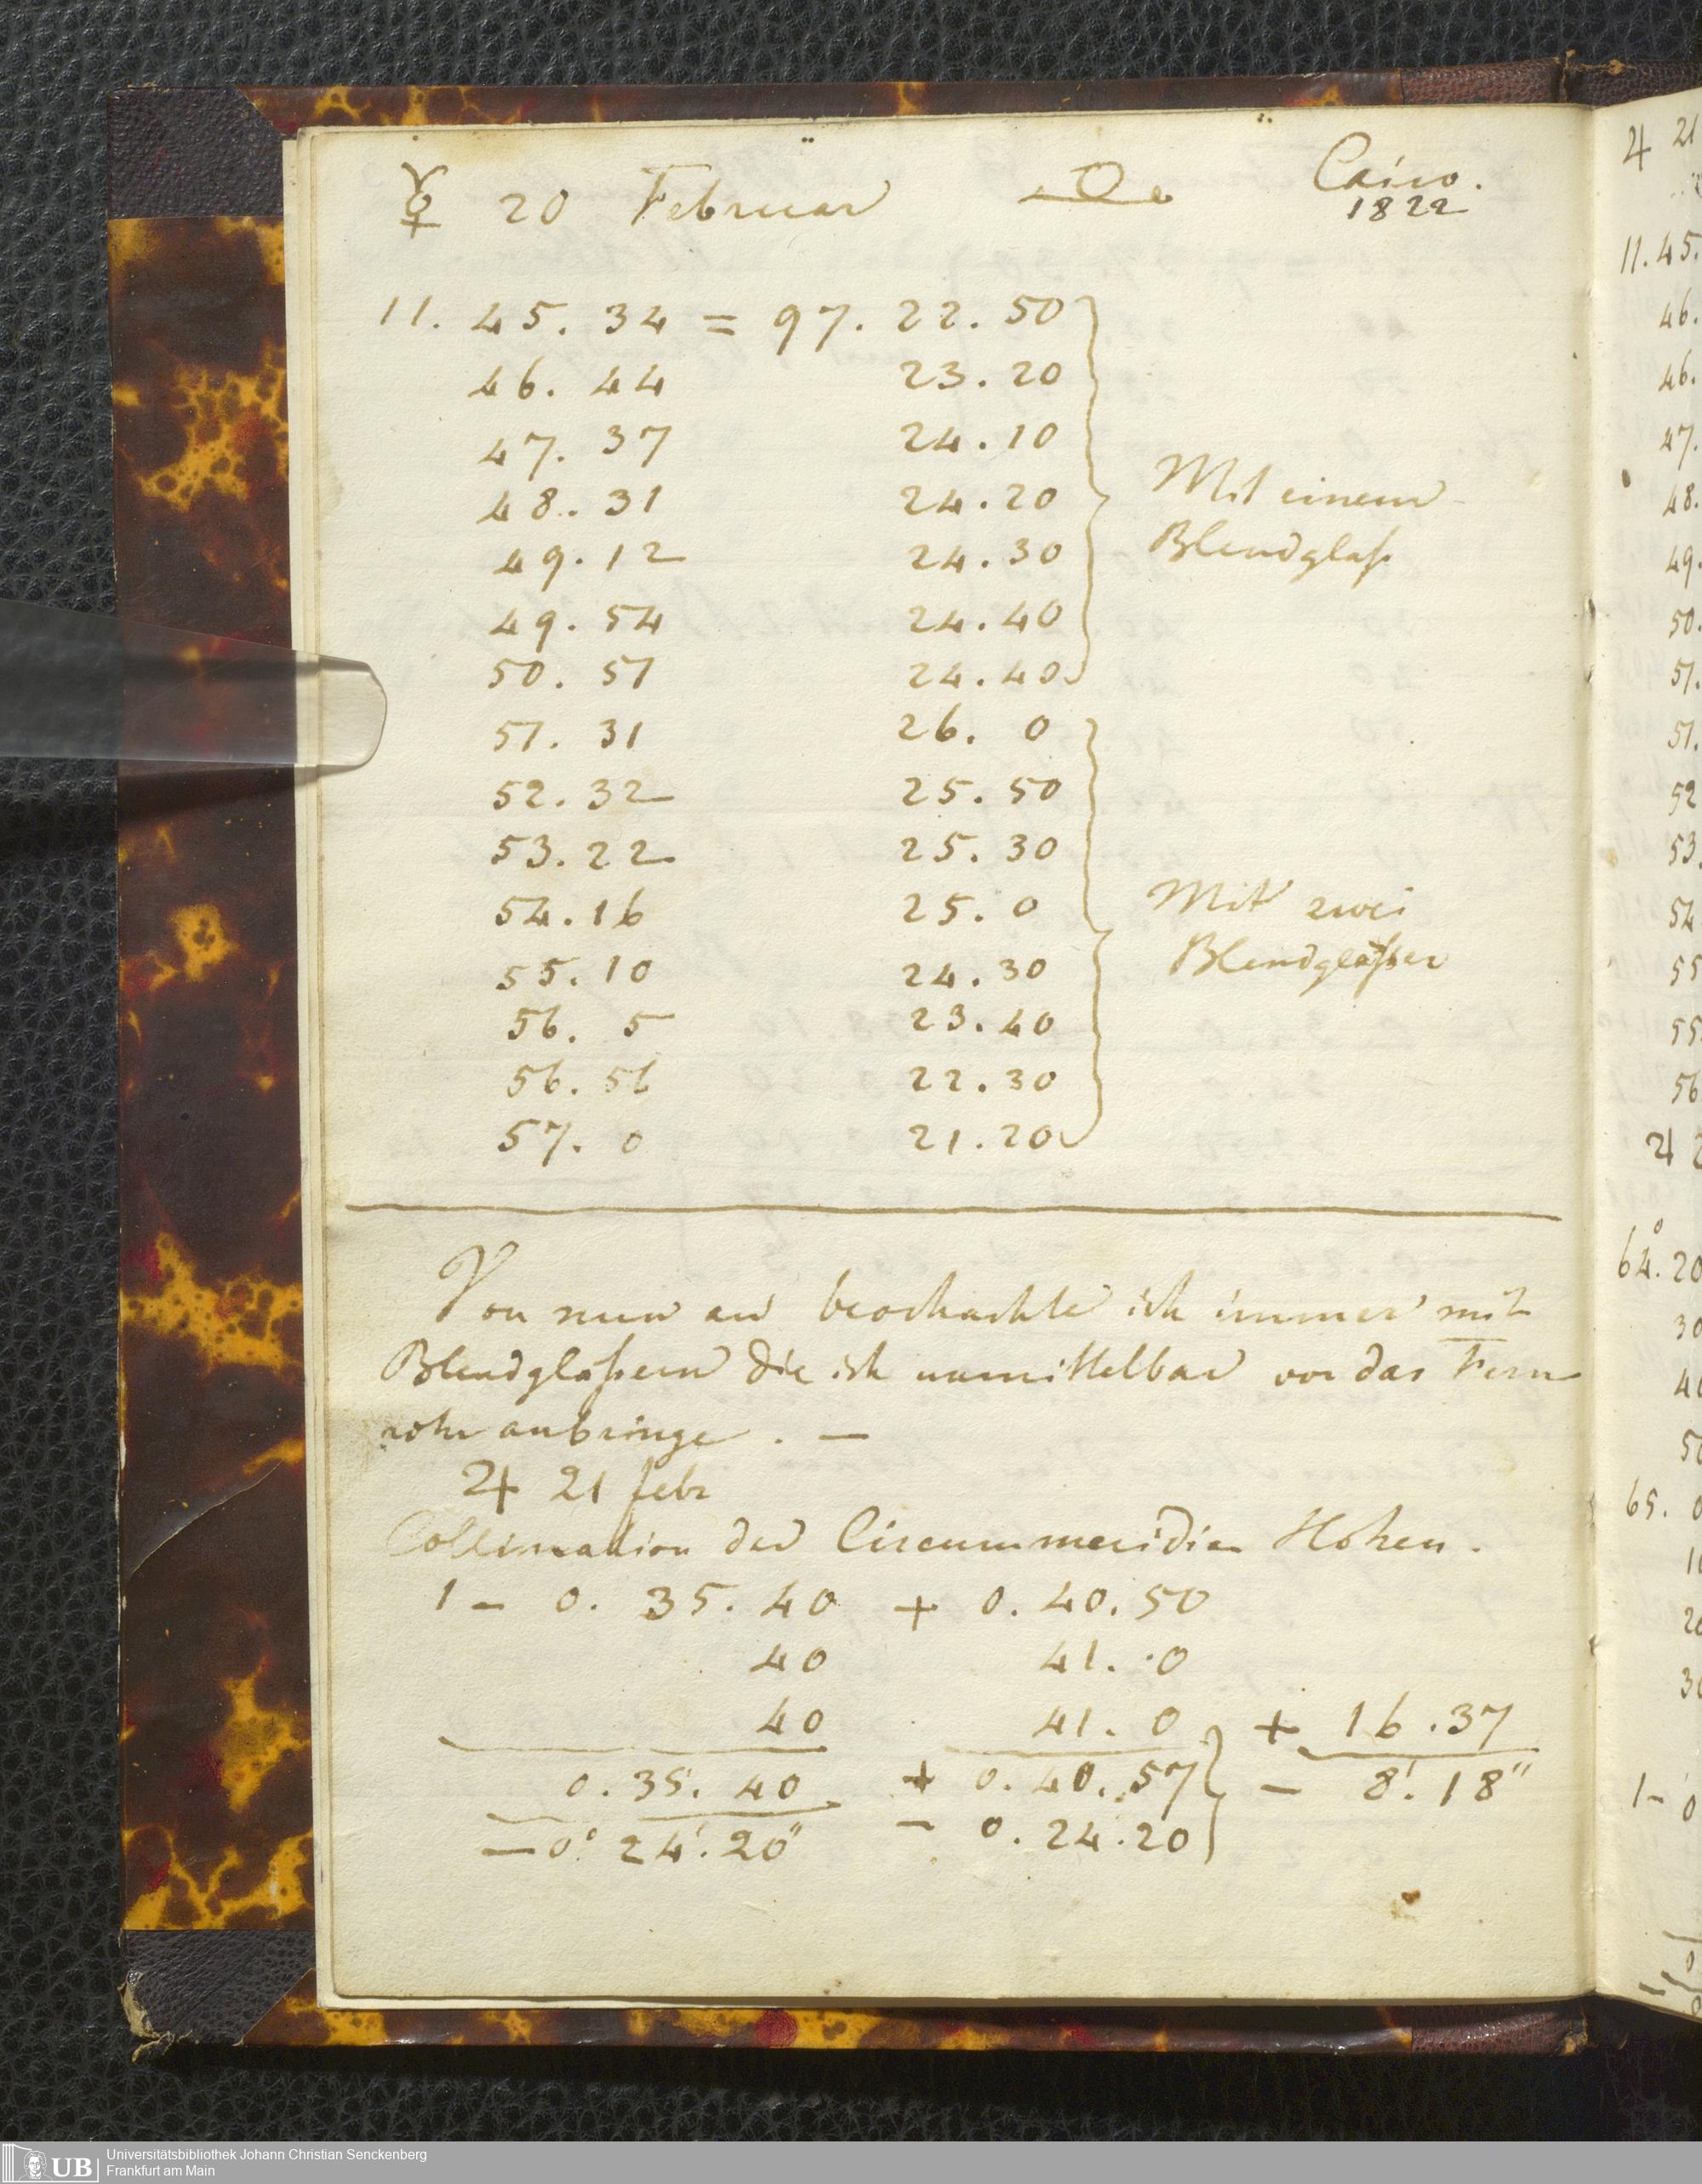 ☿ 20 Februar Cairo.
1822
11. 45. 34 = 97. 22. 50
46. 44 23. 20
47. 37 24. 10
48. 31 24. 20
49. 12 24. 30
49. 54 24. 40
50. 51 24. 40
51. 31 26. 0
52. 32 25. 50
53. 22 25. 30
54. 16 25. 0
55. 10 24. 30
56. 5 23. 40
56. 56 22. 30
57. 0 21. 20
Mit einem
Blendglaß
Mit zwei
Blendglaßer
Von nun an beobachte ich immer mit
Blendglaßern die ich unmittelbar vor das Fern
rohr anbringe. —
♃ 21 febr
Collimation der Circummeridian Hohen.
1 - 0. 35. 40 + 0. 40. 50
40 41. 0
40 41. 0 + 16. 37
0. 35. 40 + 0. 40. 57 - 8'. 18"
- 0° 24'. 20" - 0. 24. 20
♃ 21
11. 45.
46.
46.
47.
48.
49.
50.
51.
51.
52
53.
54
55
55
56
♃ 2
64.° 20
30
40
50
65. 0
10
20
30
1- 0
Universitätsbibliothek Johann Christian Senckenberg
UB Frankfurt am Main